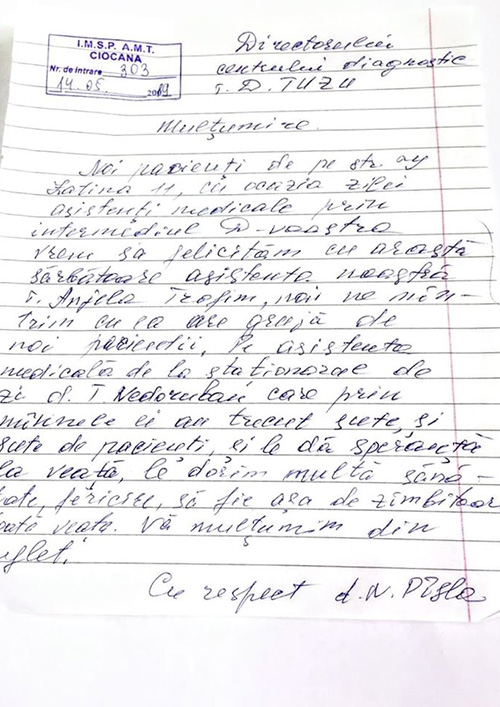 I.M.S.P. A.M.T.
CIOCANA
Nr. de intrare 303
14.05. 2019
Directorului
centrului diagnostic
d. D. ȚUZU
Mulțumire.
Noi pacienți de pe str.
Latina 11, cu ocazia zilei
asistenți medicale prin
intermediul D-voastră
vrem să felicităm cu aroastă
sărbătoare asistenta noastră
d. Anjela Trofim, noi ne mîn-
drim cu ea are grijă de
noi pacienții, pe asistenta
medicală de la staționarae de
zi d. T. Nedoruban care prin
mînnele ei au trecut sute, și
sute de pacienți, ei le dă speranță
la veață, le dorim multă sănă-
tate, fericire, să fie asa de zîmbitoar
toată veata. Vă mulțumim din
suflet.
Cu respect d. N. Pîsla